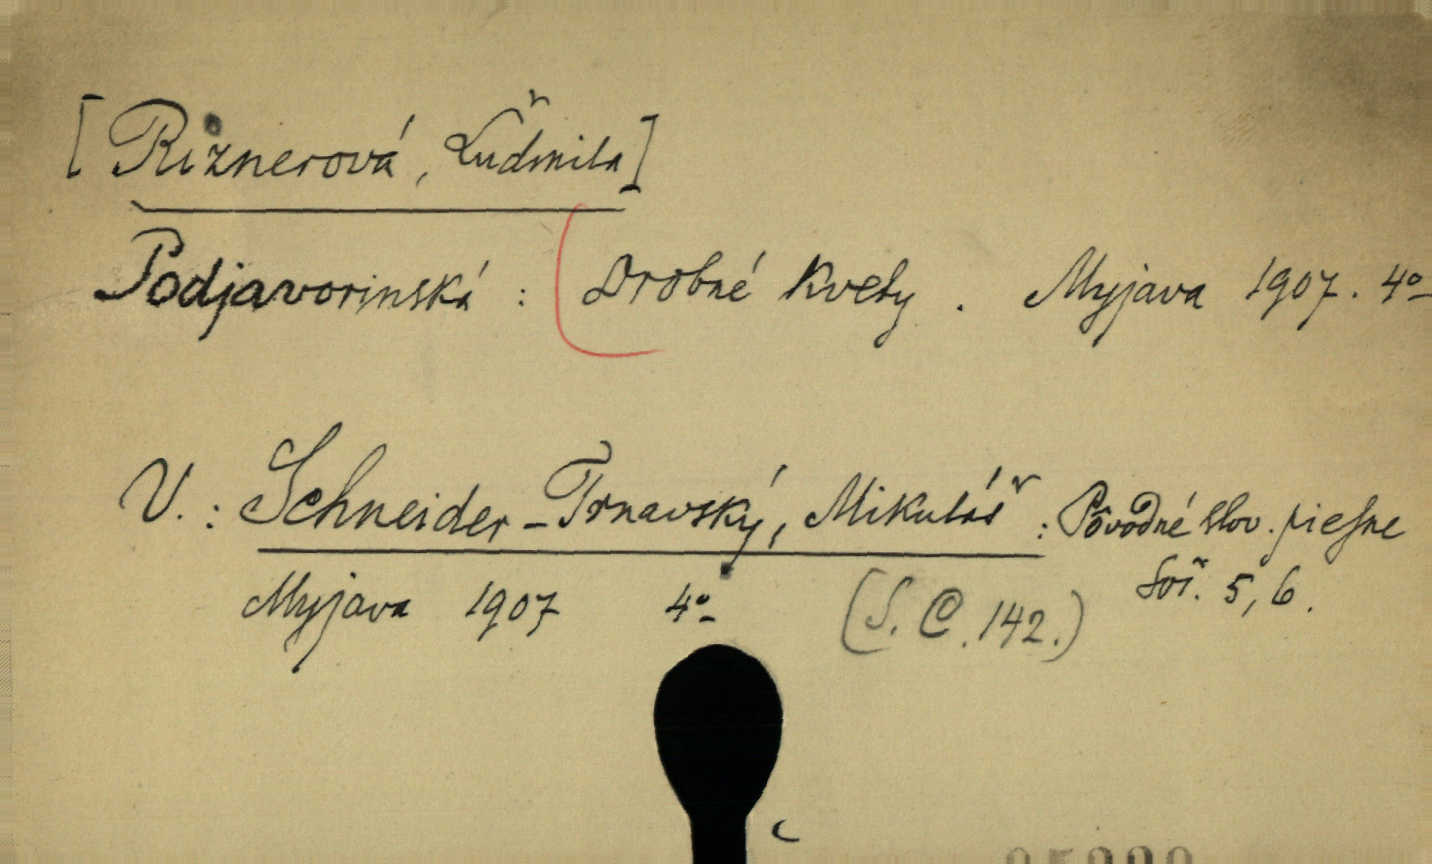 [Riznerová, Ľudmila]
Podjavorinská : Drobné Kvety. Myjava 1907. 4°
V.: Schneider-Trnavský, Mikuláš : Pôvodné slov. piesne
Soš. 5, 6.
Myjava 1907 4° (S. C. 142.)